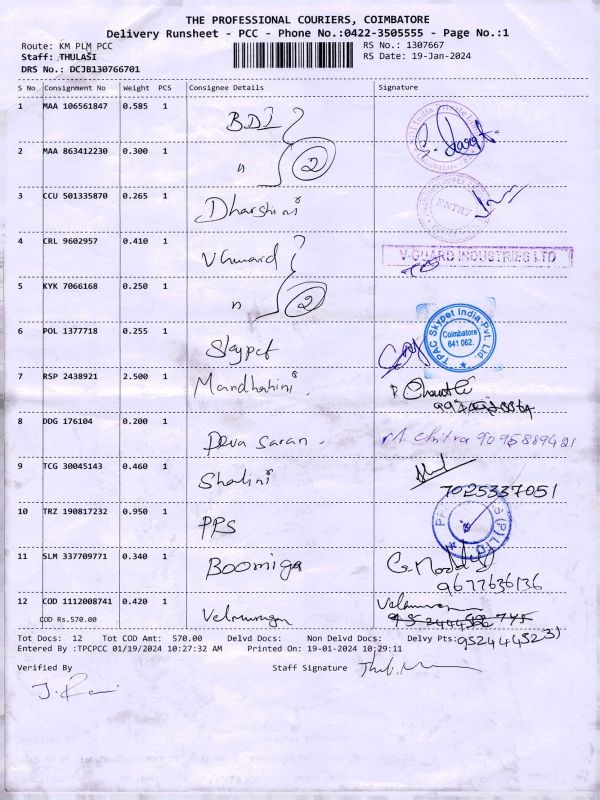 THE PROFESSIONAL COURIERS, COIMBATORE
Delivery Runsheet - PCC - Phone No.:0422-3505555 - Page No.:1
Route: KM PLM PCC RS No.: 1307667
Staff: THULASI RS Date: 19-Jan-2024
DRS No.: DCJB130766701
S No Consignment No Weight PCS Consignee Details Signature
1 MAA 106561847 0.585 1 BDI
2 MAA 863412230 0.300 1 " 2
3 CCU 501335870 0.265 1 Dharshini ENTRY
4 CRL 9602957 0.410 1 V Guward V-GUARD INDUSTRIES LTD
5 KYK 7066168 0.250 1 " 2
6 POL 1377718 0.255 1 Skypet TPAC Skypet India Pvt. Ltd Coimbatore 641 062.
7 RSP 2438921 2.500 1 Mandhahini
8 DDG 176104 0.200 1 Deva Saran. M. Chitra 9095889421
9 TCG 30045143 0.460 1 Shalini 7025337051
10 TRZ 190817232 0.950 1 PPS
11 SLM 337709771 0.340 1 Boomiga 9677636136
12 COD 1112008741 0.420 1 Velmurugan
COD Rs.570.00
Tot Docs: 12 Tot COD Amt: 570.00 Delvd Docs: Non Delvd Docs: Delvy Pts:
Entered By :TPCPCC 01/19/2024 10:27:32 AM Printed On: 19-01-2024 10:29:11
Verified By Staff Signature